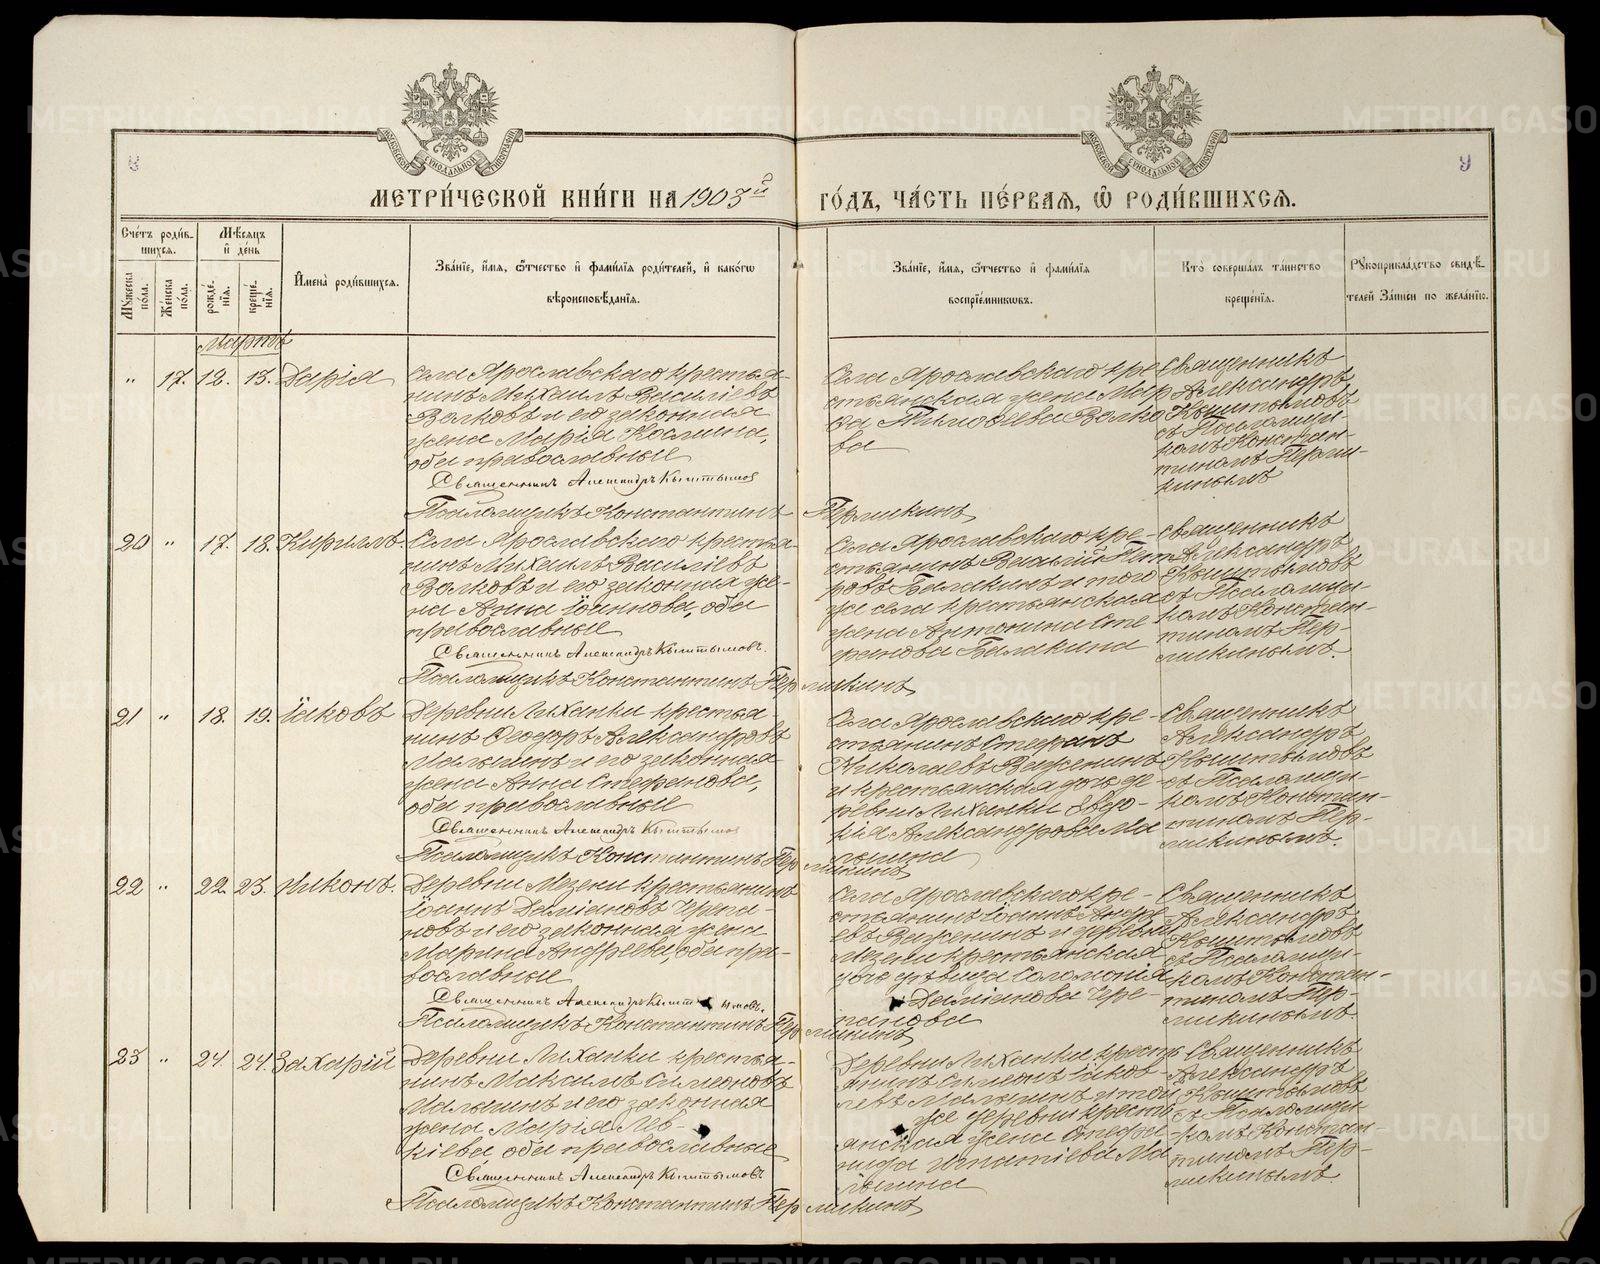 МЕТРИ́ЧЕСКОЙ КНИ́ГИ НА 1903й ГО́ДЪ, ЧА́СТЬ ПЕ́РВАѦ, Ѡ҆ РОДИ́ВШИХСѦ.
Сче́тъ роди́в-
шихсѧ.
Мꙋжеска по́ла.
Же́нска по́ла.
Мѣ́сѧцъ
и҆ де́нь
рожде́-
нїѧ.
креще́-
нїѧ.
И҆мена̀ роди́вшихсѧ.
Зва́нїе, и҆́мѧ, ѻ҆́тчество и҆ фами́лїѧ роди́телей, и҆ како́гѡ
вѣроисповѣ́данїѧ.
Зва́нїе, и҆́мѧ, ѻ҆́тчество и҆ фами́лїѧ
воспрїе́мникѡвъ.
Кто̀ соверша́лъ та́инство
креще́нїѧ.
Рꙋкоприкла́дство свидѣ́-
телей За́писи по жела́нїю.
Мартъ
" 17. 12. 13. Дарія
Села Ярославскаго крестья-
нинъ Михаилъ Василіевъ
Волковъ и его законная
жена Марія Косьмина,
оба православные
Священникъ Александръ Кыштымов
Псаломщикъ Константинъ Пермикинъ
Села Ярославскаго кре-
стьянская жена Мар
ѳа Тимоѳеева Волко
ва
Священникъ
Александръ
Кыштымовъ
съ Псаломщи-
комъ Констан-
тиномъ Перми-
кинымъ
20 " 17. 18. Кириллъ.
Села Ярославскаго крестья-
нинъ Михаилъ Василіевъ
Волковъ и его законная же-
на Анна Іоаннова, оба
православные
Священникъ Александръ Кыштымовъ.
Псаломщикъ Константинъ Пермикинъ
Села Ярославскаго кре-
стьянинъ Василій Пет
ровъ Балакинъ и того
же села крестьянская
жена Антонина Сте
фанова Балакина
Священникъ
Александръ
Кыштымовъ
съ Псаломщи-
комъ Констан-
тиномъ Пер-
микинымъ.
21 " 18. 19. Іаковъ
Деревни Лиханки крестья-
нинъ Ѳеодоръ Александровъ
Малыгинъ и его законная
жена Анна Стефанова,
оба православные
Священникъ Александръ Кыштымов
Псаломщикъ Константинъ Пермикинъ
Села Ярославскаго кре-
стьянинъ Стефанъ
Николаевъ Важенинъ
и крестьянская дочь де-
ревни Лиханки Евдо-
кія Александрова Ма
лыгина
Священникъ
Александръ
Кыштымовъ
съ Псаломщи-
комъ Констан-
тиномъ Пер-
микинымъ.
22 " 22. 23. Никонъ.
Деревни Мезени крестьянинъ
Іоаннъ Даміановъ Черепа-
новъ и его законная жена
Марина Андреева, оба пра-
вославные
Священникъ Александръ Кыштымовъ.
Псаломщикъ Константинъ Пермикинъ
Села Ярославскаго кре-
стьянинъ Іоаннъ Андре
евъ Важенинъ и деревни
Мезени крестьянская
дочь дѣвица Соломонія
Даміанова Чере-
панова
Священникъ
Александръ
Кыштымовъ
съ Псаломщи-
комъ Констан-
тиномъ Пер-
микинымъ.
23 " 24. 24. Захарій
Деревни Лиханки крестья-
нинъ Максимъ Симеоновъ
Малыгинъ и его законная
жена Марія Лев-
кіева оба православные
Священникъ Александръ Кыштымовъ
Псаломщикъ Константинъ Пермикинъ
Деревни Лиханки кресть
янинъ Симеонъ Іаков-
левъ Малыгинъ и той
же деревни кресть
янская жена Стефа-
нида Игнатіева Ма
лыгина
Священникъ
Александръ
Кыштымовъ
съ Псаломщи-
комъ Констан-
тиномъ Пер-
микинымъ
METRIKI.GASO-URAL.RU